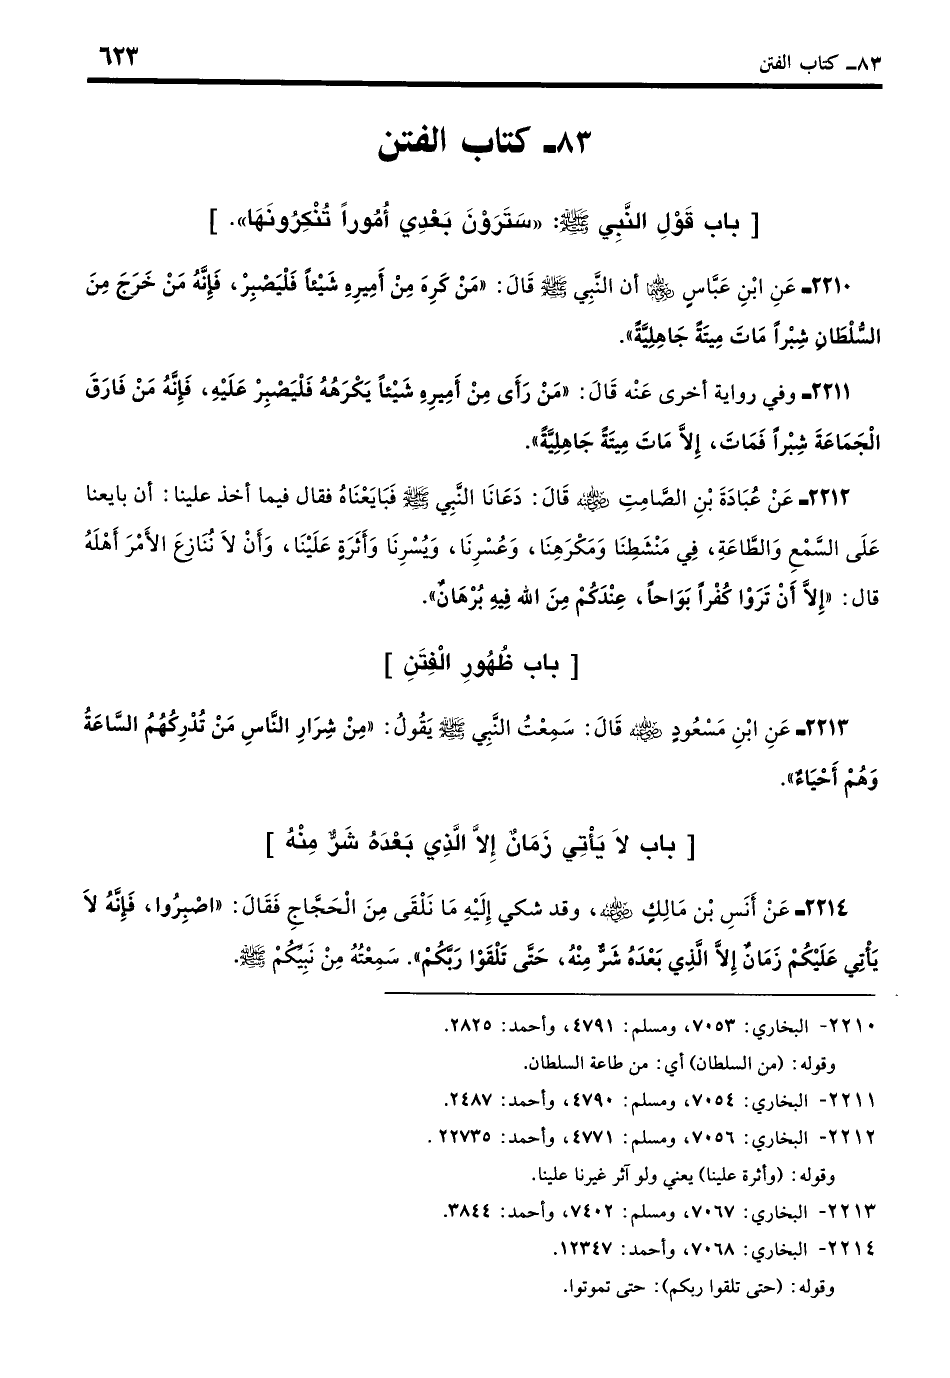 ٨٣ـ كتاب الفتن
٦٢٣
٨٣ـ كتاب الفتن
[ باب قَوْلِ النَّبِي ﷺ: «سَتَرَوْنَ بَعْدِي أُمُوراً تُنْكِرُونَهَا». ]
٢٢١٠ـ عَنِ ابْنِ عَبَّاسٍ رضي الله عنهما أن النَّبِي ﷺ قَالَ: «مَنْ كَرِهَ مِنْ أَمِيرِهِ شَيْئاً فَلْيَصْبِرْ، فَإِنَّهُ مَنْ خَرَجَ مِنَ
السُّلْطَانِ شِبْراً مَاتَ مِيتَةً جَاهِلِيَّةً».
٢٢١١ـ وفي رواية أخرى عَنْه قَالَ: «مَنْ رَأَى مِنْ أَمِيرِهِ شَيْئاً يَكْرَهُهُ فَلْيَصْبِرْ عَلَيْهِ، فَإِنَّهُ مَنْ فَارَقَ
الْجَمَاعَةَ شِبْراً فَمَاتَ، إِلاَّ مَاتَ مِيتَةً جَاهِلِيَّةً».
٢٢١٢ـ عَنْ عُبَادَةَ بْنِ الصَّامِتِ رضي الله عنه قَالَ: دَعَانَا النَّبِي ﷺ فَبَايَعْنَاهُ فقال فيما أخذ علينا: أن بايعنا
عَلَى السَّمْعِ وَالطَّاعَةِ، فِي مَنْشَطِنَا وَمَكْرَهِنَا، وَعُسْرِنَا، وَيُسْرِنَا وَأَثَرَةٍ عَلَيْنَا، وَأَنْ لاَ نُنَازِعَ الأَمْرَ أَهْلَهُ
قال: «إِلاَّ أَنْ تَرَوْا كُفْراً بَوَاحاً، عِنْدَكُمْ مِنَ الله فِيهِ بُرْهَانٌ».
[ باب ظُهُورِ الْفِتَنِ ]
٢٢١٣ـ عَنِ ابْنِ مَسْعُودٍ رضي الله عنه قَالَ: سَمِعْتُ النَّبِي ﷺ يَقُولُ: «مِنْ شِرَارِ النَّاسِ مَنْ تُدْرِكُهُمُ السَّاعَةُ
وَهُمْ أَحْيَاءٌ».
[ باب لاَ يَأْتِي زَمَانٌ إِلاَّ الَّذِي بَعْدَهُ شَرٌّ مِنْهُ ]
٢٢١٤ـ عَنْ أَنَسِ بْن مَالِكٍ رضي الله عنه، وقد شكي إِلَيْهِ مَا نَلْقَى مِنَ الْحَجَّاجِ فَقَالَ: «اصْبِرُوا، فَإِنَّهُ لاَ
يَأْتِي عَلَيْكُمْ زَمَانٌ إِلاَّ الَّذِي بَعْدَهُ شَرٌّ مِنْهُ، حَتَّى تَلْقَوْا رَبَّكُمْ». سَمِعْتُهُ مِنْ نَبِيِّكُمْ ﷺ.
٢٢١٠- البخاري: ٧٠٥٣، ومسلم: ٤٧٩١، وأحمد: ٢٨٢٥.
وقوله: (من السلطان) أي: من طاعة السلطان.
٢٢١١- البخاري: ٧٠٥٤، ومسلم: ٤٧٩٠، وأحمد: ٢٤٨٧.
٢٢١٢- البخاري: ٧٠٥٦، ومسلم: ٤٧٧١، وأحمد: ٢٢٧٣٥.
وقوله: (وأثرة علينا) يعني ولو آثر غيرنا علينا.
٢٢١٣- البخاري: ٧٠٦٧، ومسلم: ٧٤٠٢، وأحمد: ٣٨٤٤.
٢٢١٤- البخاري: ٧٠٦٨، وأحمد: ١٢٣٤٧.
وقوله: (حتى تلقوا ربكم): حتى تموتوا.